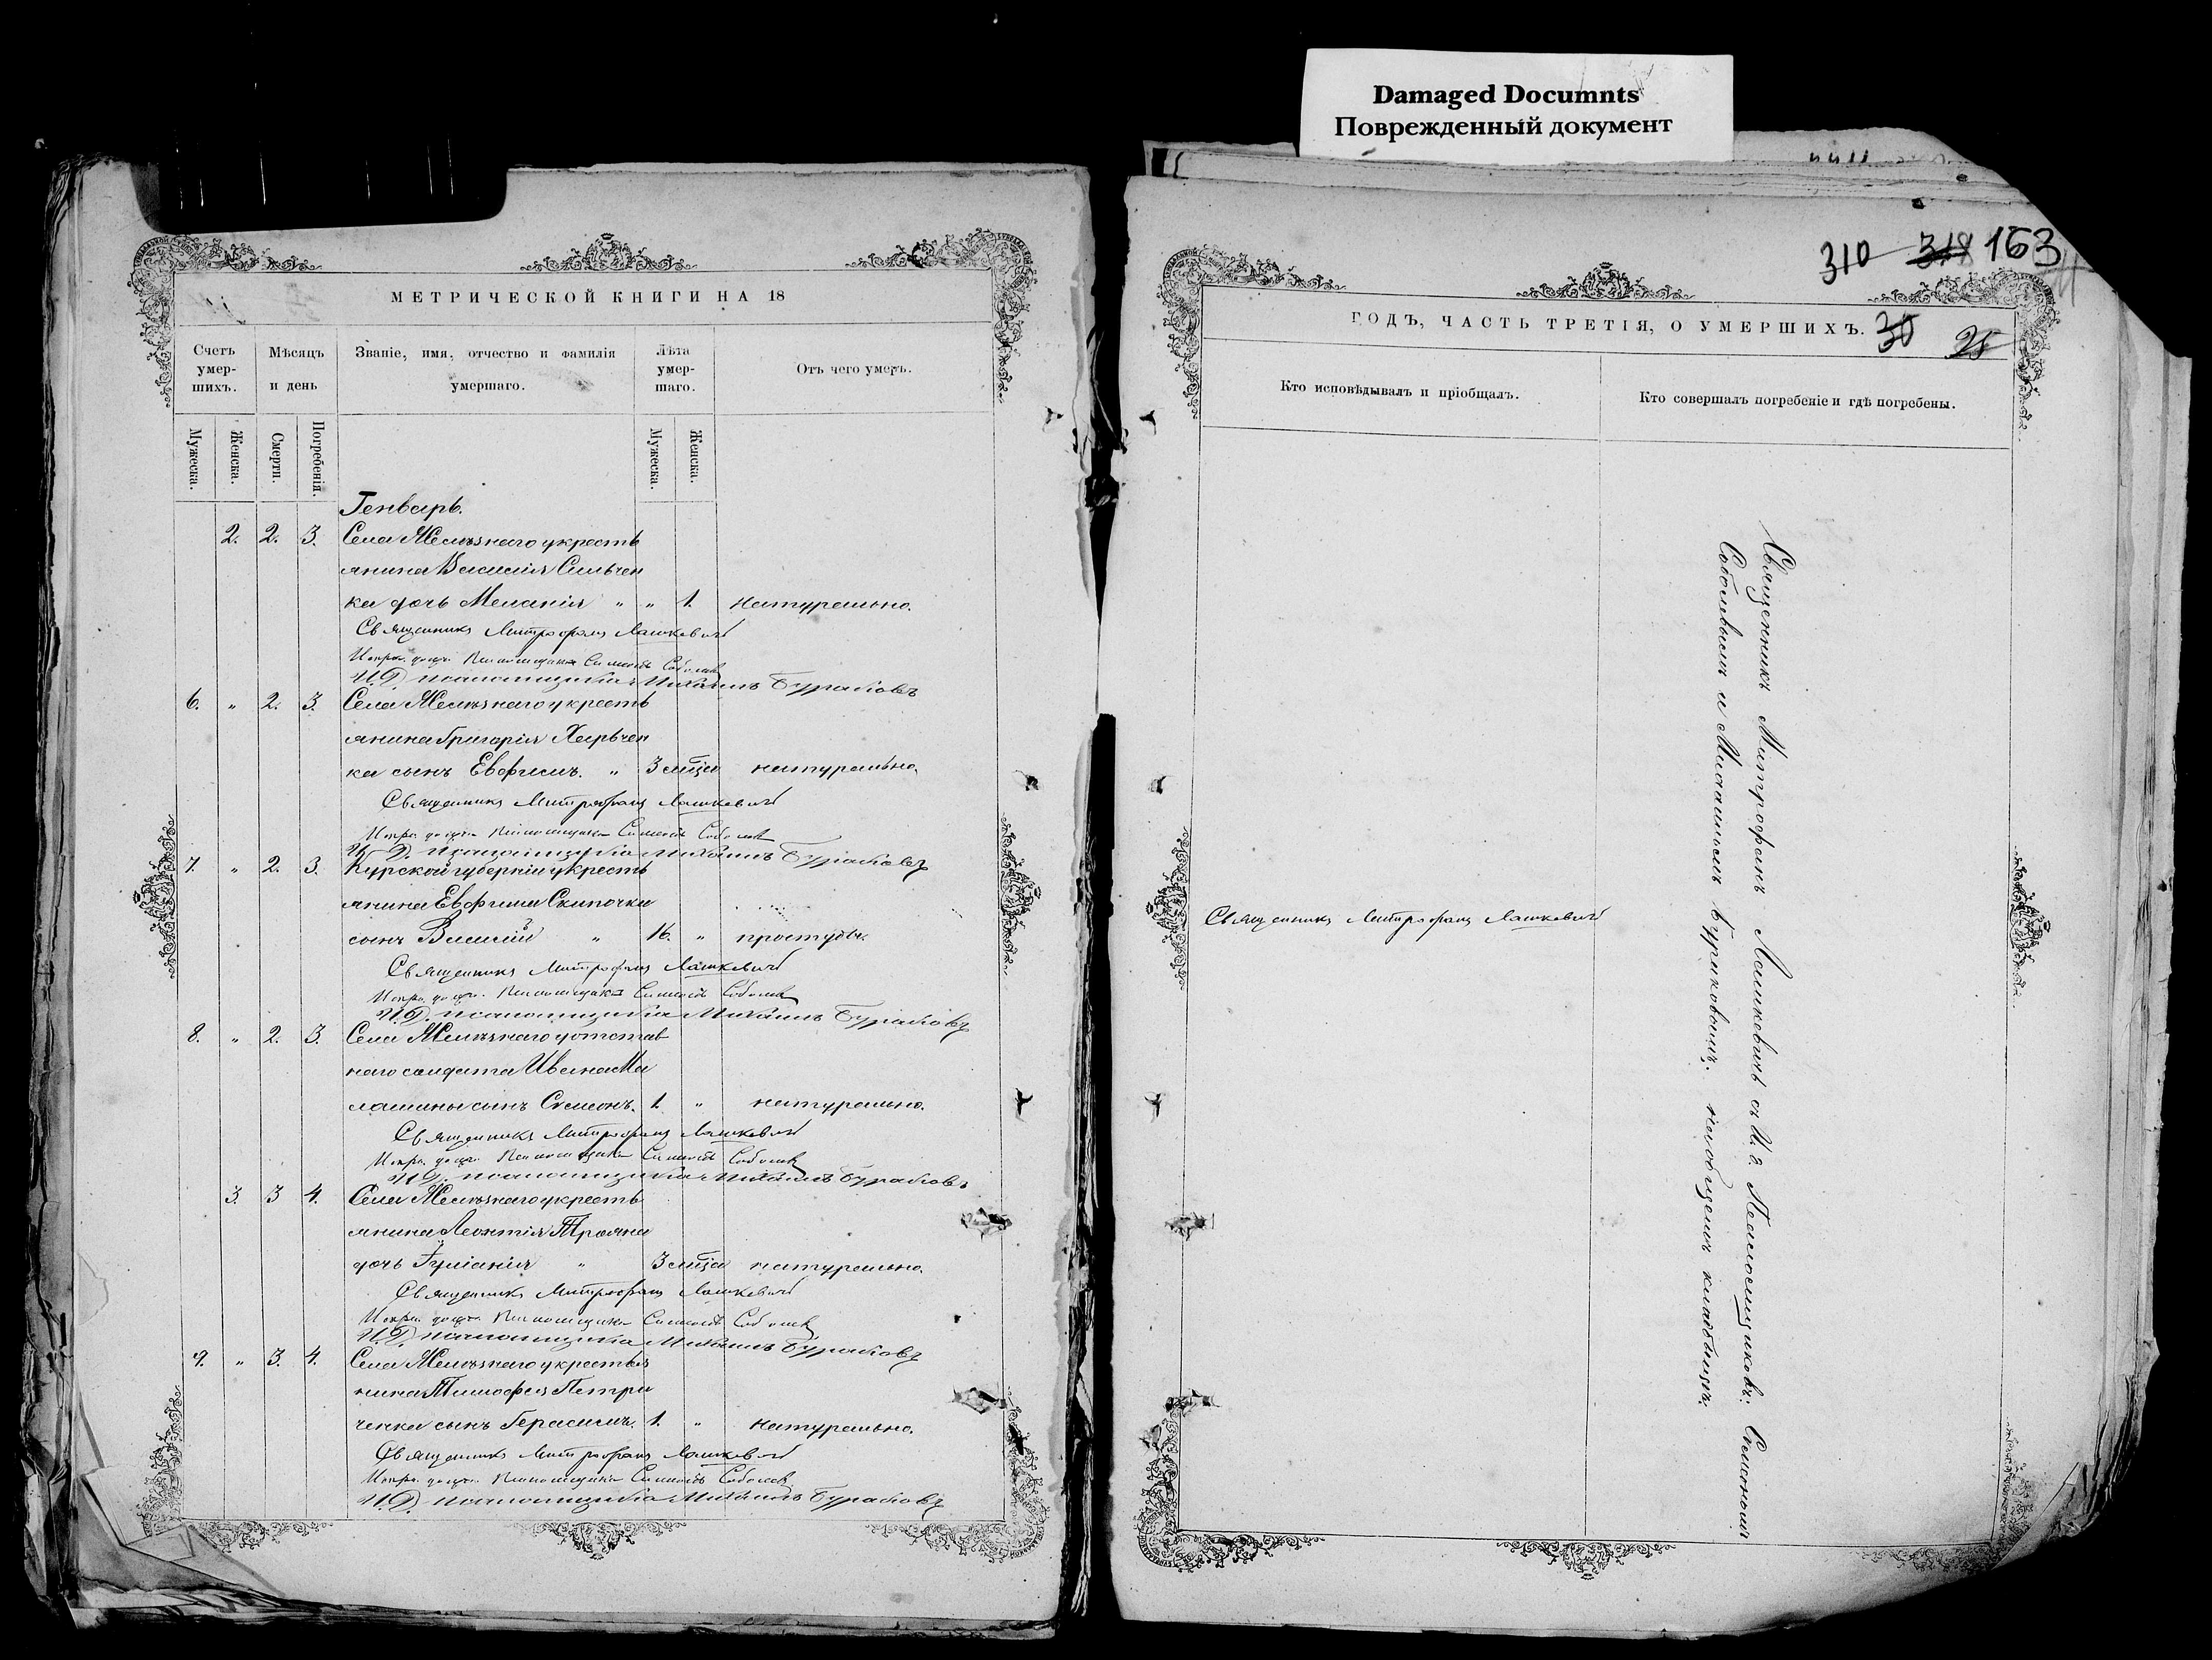 Damaged Documnts
Поврежденный документ
МЕТРИЧЕСКОЙ КНИГИ НА 18
Счетъ умер-шихъ.
Мѣсяцъ и день
Званіе, имя, отчество и фамилія умершаго.
Лѣта умер-шаго.
Отъ чего умеръ.
Мужеска.
Женска.
Смерти.
Погребенія.
Мужеска.
Женска.
Генварь.
2. 2. 3. Села Желѣзнаго у кресть
янина Василія Сильчен
ка дочь Меланія " " 1. натурально.
Священникъ Митрофанъ Лашкевичъ
Испр. долж. Псаломщика Симеонъ Соболевъ
И.Д. псаломщика Михаилъ Бураковъ
6. " 2. 3. Села Желѣзнаго у кресть
янина Григорія Харчен
ка сынъ Евфимъ. " 3 мѣсца натурально.
Священникъ Митрофанъ Лашкевичъ
Испр. долж. Псаломщика Симеонъ Соболевъ
И.Д. псаломщика Михаилъ Бураковъ
7. " 2. 3. Курской губерніи у кресть
янина Евфима Скипочки
сынъ Василій " 16. " простуды.
Священникъ Митрофанъ Лашкевичъ
Испр. долж. Псаломщика Симеонъ Соболевъ
И.Д. псаломщика Михаилъ Бураковъ
8. " 2. 3. Села Желѣзнаго у отстав
наго солдата Ивана Ма
лашины сынъ Симеонъ. 1. " натурально.
Священникъ Митрофанъ Лашкевичъ
Испр. долж. Псаломщика Симеонъ Соболевъ
И.Д. псаломщика Михаилъ Бураковъ
3. 3 4. Села Желѣзнаго у кресть
янина Леонтія Трояна
дочь Іуліанія " 3 мѣсца натурально.
Священникъ Митрофанъ Лашкевичъ
Испр. долж. Псаломщика Симеонъ Соболевъ
И.Д. псаломщика Михаилъ Бураковъ
9. " 3. 4. Села Желѣзнаго у крестья
нина Тимофея Петри
ченка сынъ Герасимъ. 1. " натурально.
Священникъ Митрофанъ Лашкевичъ
Испр. долж. Псаломщика Симеонъ Соболевъ
И.Д. псаломщика Михаилъ Бураковъ
310 319 163
ГОДЪ, ЧАСТЬ ТРЕТІЯ, О УМЕРШИХЪ. 30 25
Кто исповѣдывалъ и пріобщалъ.
Кто совершалъ погребеніе и гдѣ погребены.
Священникъ Митрофанъ Лашкевичъ
Священникъ Митрофанъ Лашкевичъ съ И. д. Псаломщиковъ: Симеономъ
Соболевымъ и Михаиломъ Бураковымъ. на общемъ кладбищѣ.